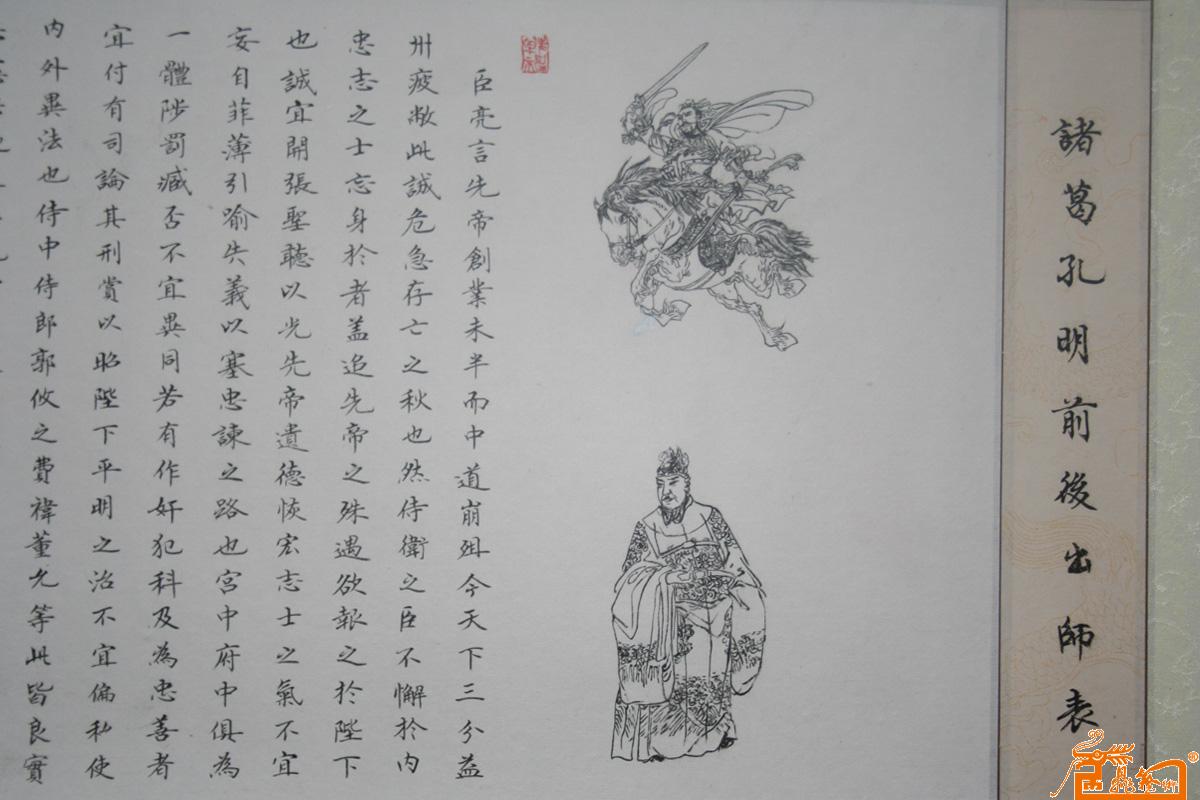 諸葛孔明前後出師表
臣亮言先帝創業未半而中道崩殂今天下三分益
州疲敝此誠危急存亡之秋也然侍衛之臣不懈於內
忠志之士忘身於者蓋追先帝之殊遇欲報之於陛下
也誠宜開張聖聽以光先帝遺德恢宏志士之氣不宜
妄自菲薄引喻失義以塞忠諫之路也宮中府中俱為
一體陟罰臧否不宜異同若有作奸犯科及為忠善者
宜付有司論其刑賞以昭陛下平明之治不宜偏私使
內外異法也侍中侍郎郭攸之費禕董允等此皆良實